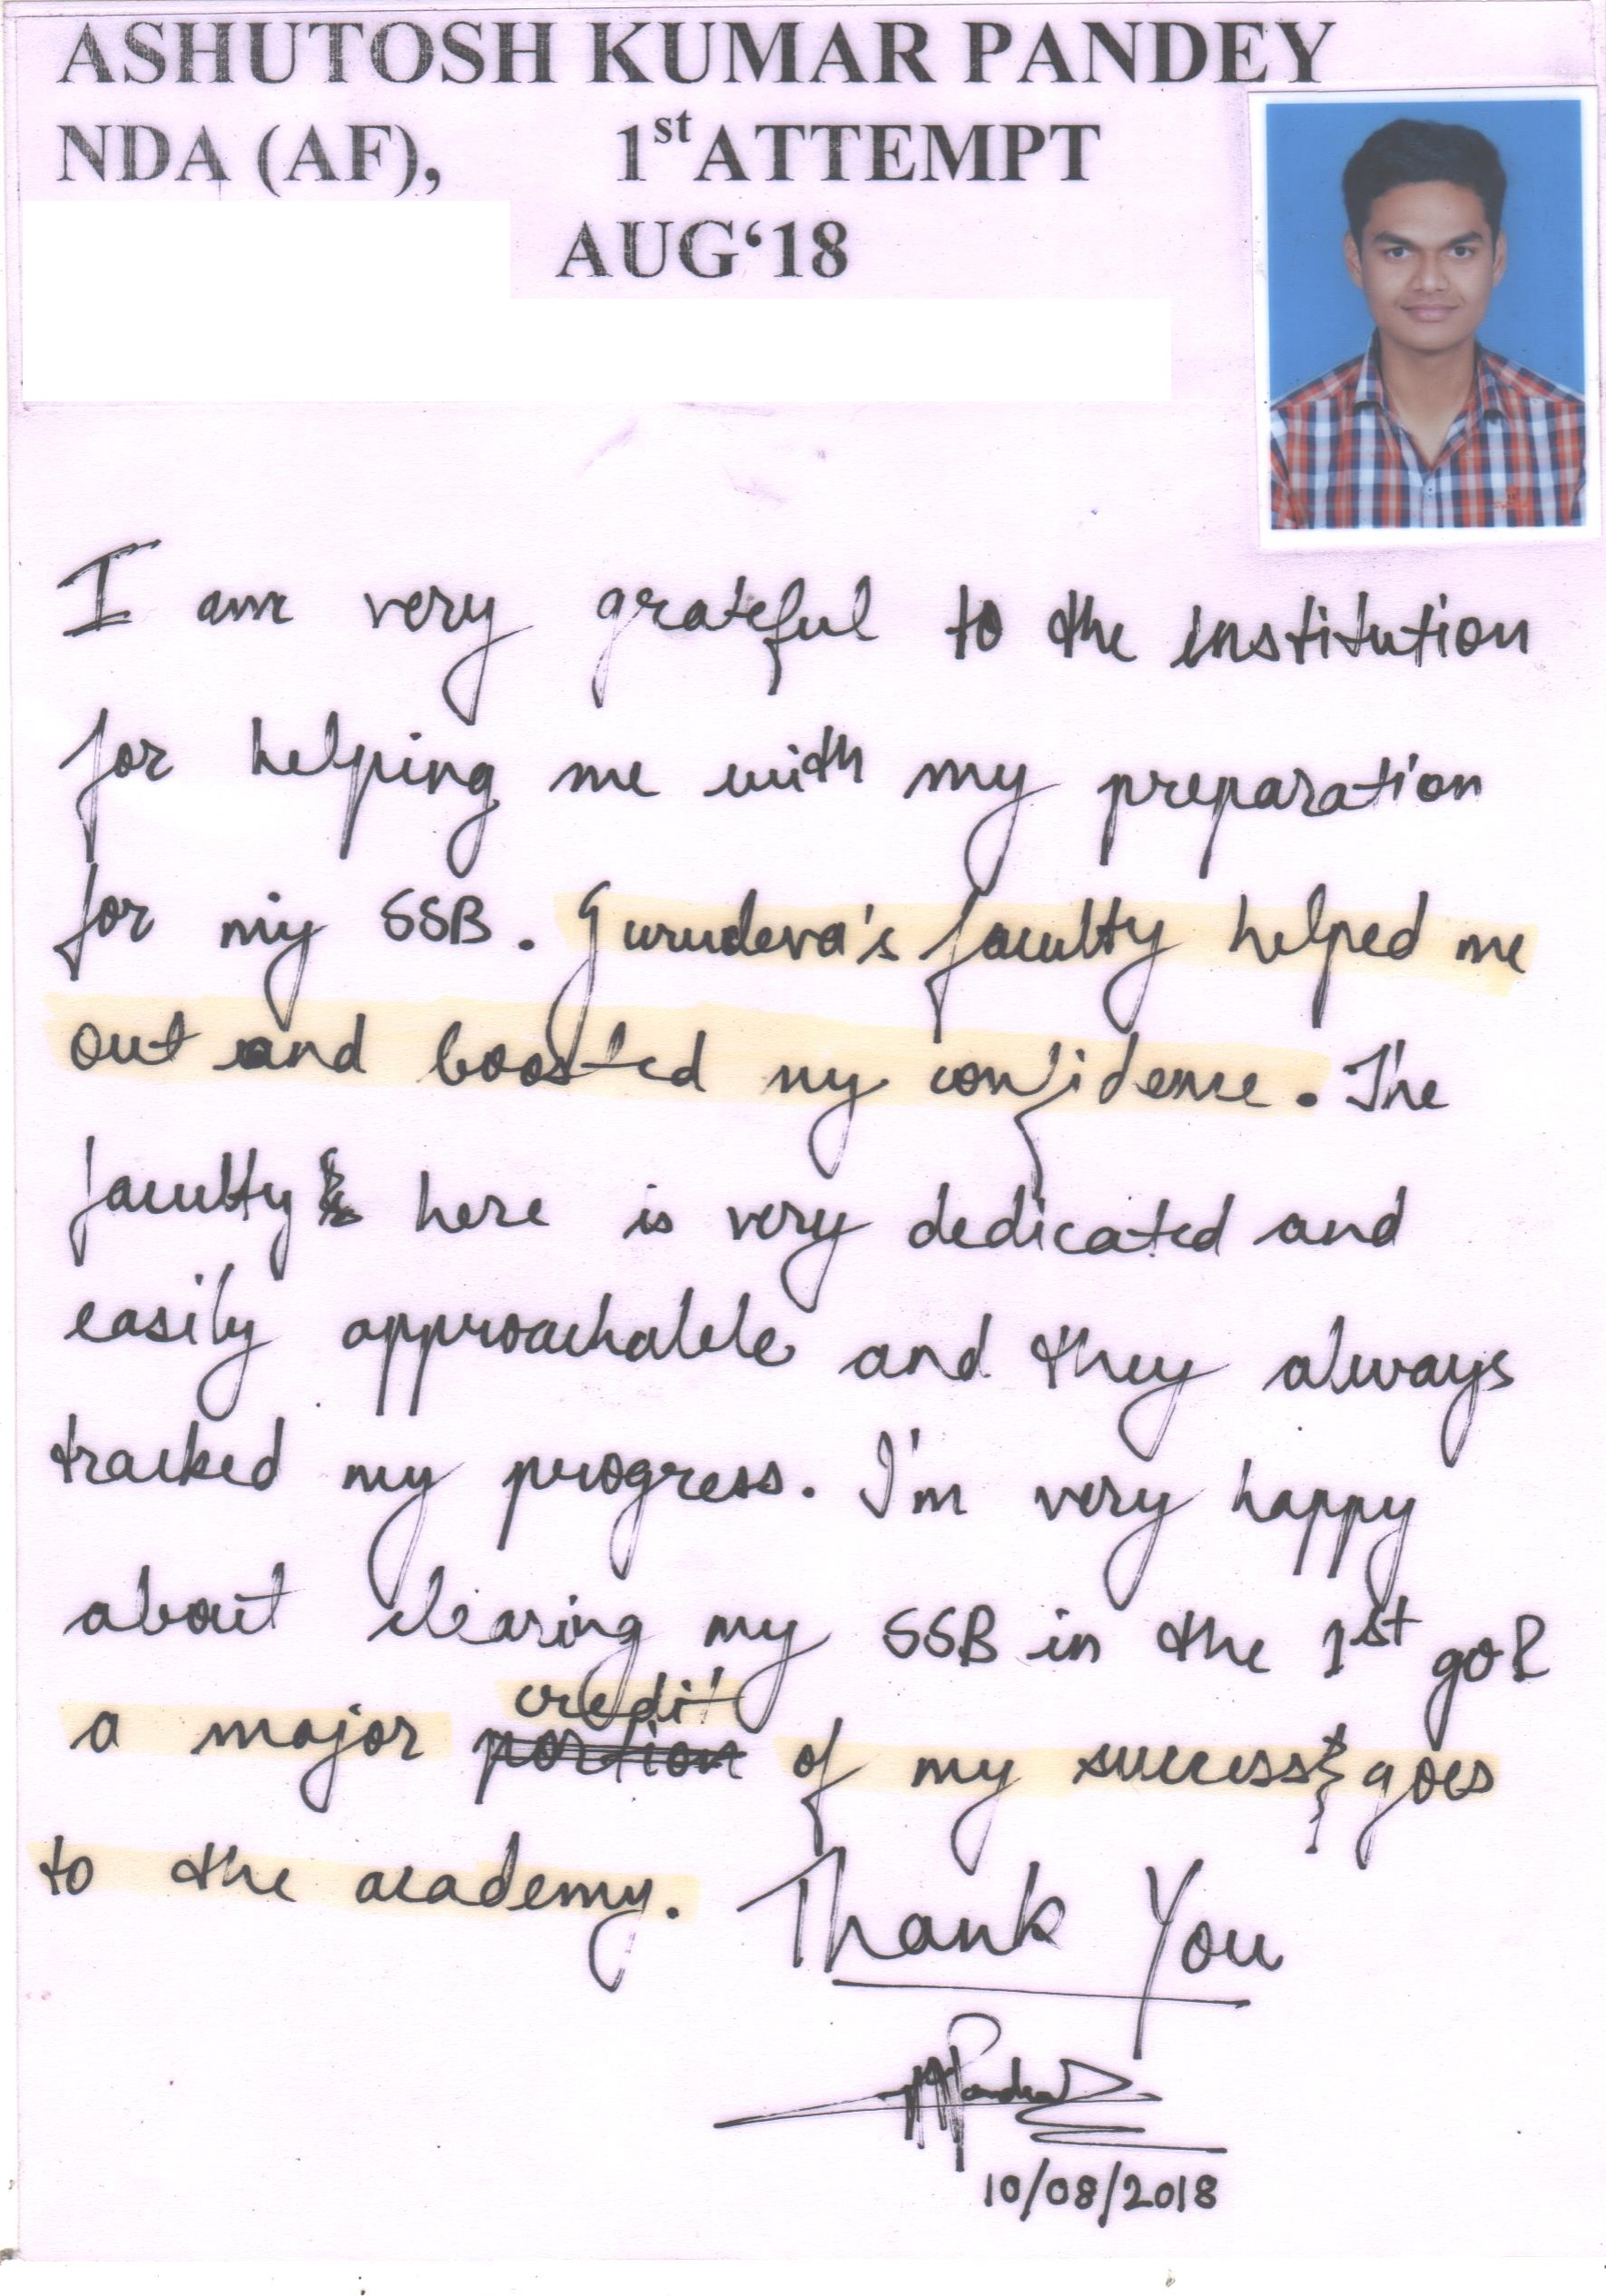 ASHUTOSH KUMAR PANDEY
NDA (AF), 1st ATTEMPT
AUG‘18
I am very grateful to the institution
for helping me with my preparation
for my SSB. Gurudeva's faculty helped me
out and boosted my confidence. The
faculty here is very dedicated and
easily approachable and they always
tracked my progress. I'm very happy
about clearing my SSB in the 1st go &
credit
a major portion of my success goes
to the academy. Thank You
10/08/2018